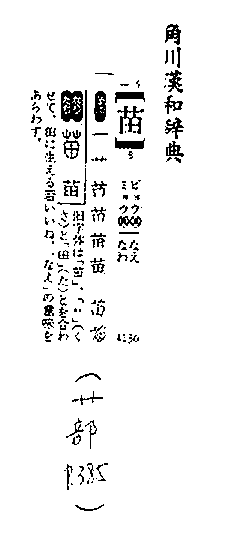 角川漢和辞典
苗
ビョウ
ミョウ
なえ
なわ
一 艹 苎 苗 苗 苗
苗 旧字体は「苗」。「艹」(く
さ)と「田」(た)とを合わ
せて、田に生える若いいね、「なえ」の意味を
あらわす。
(艹部
P.385)